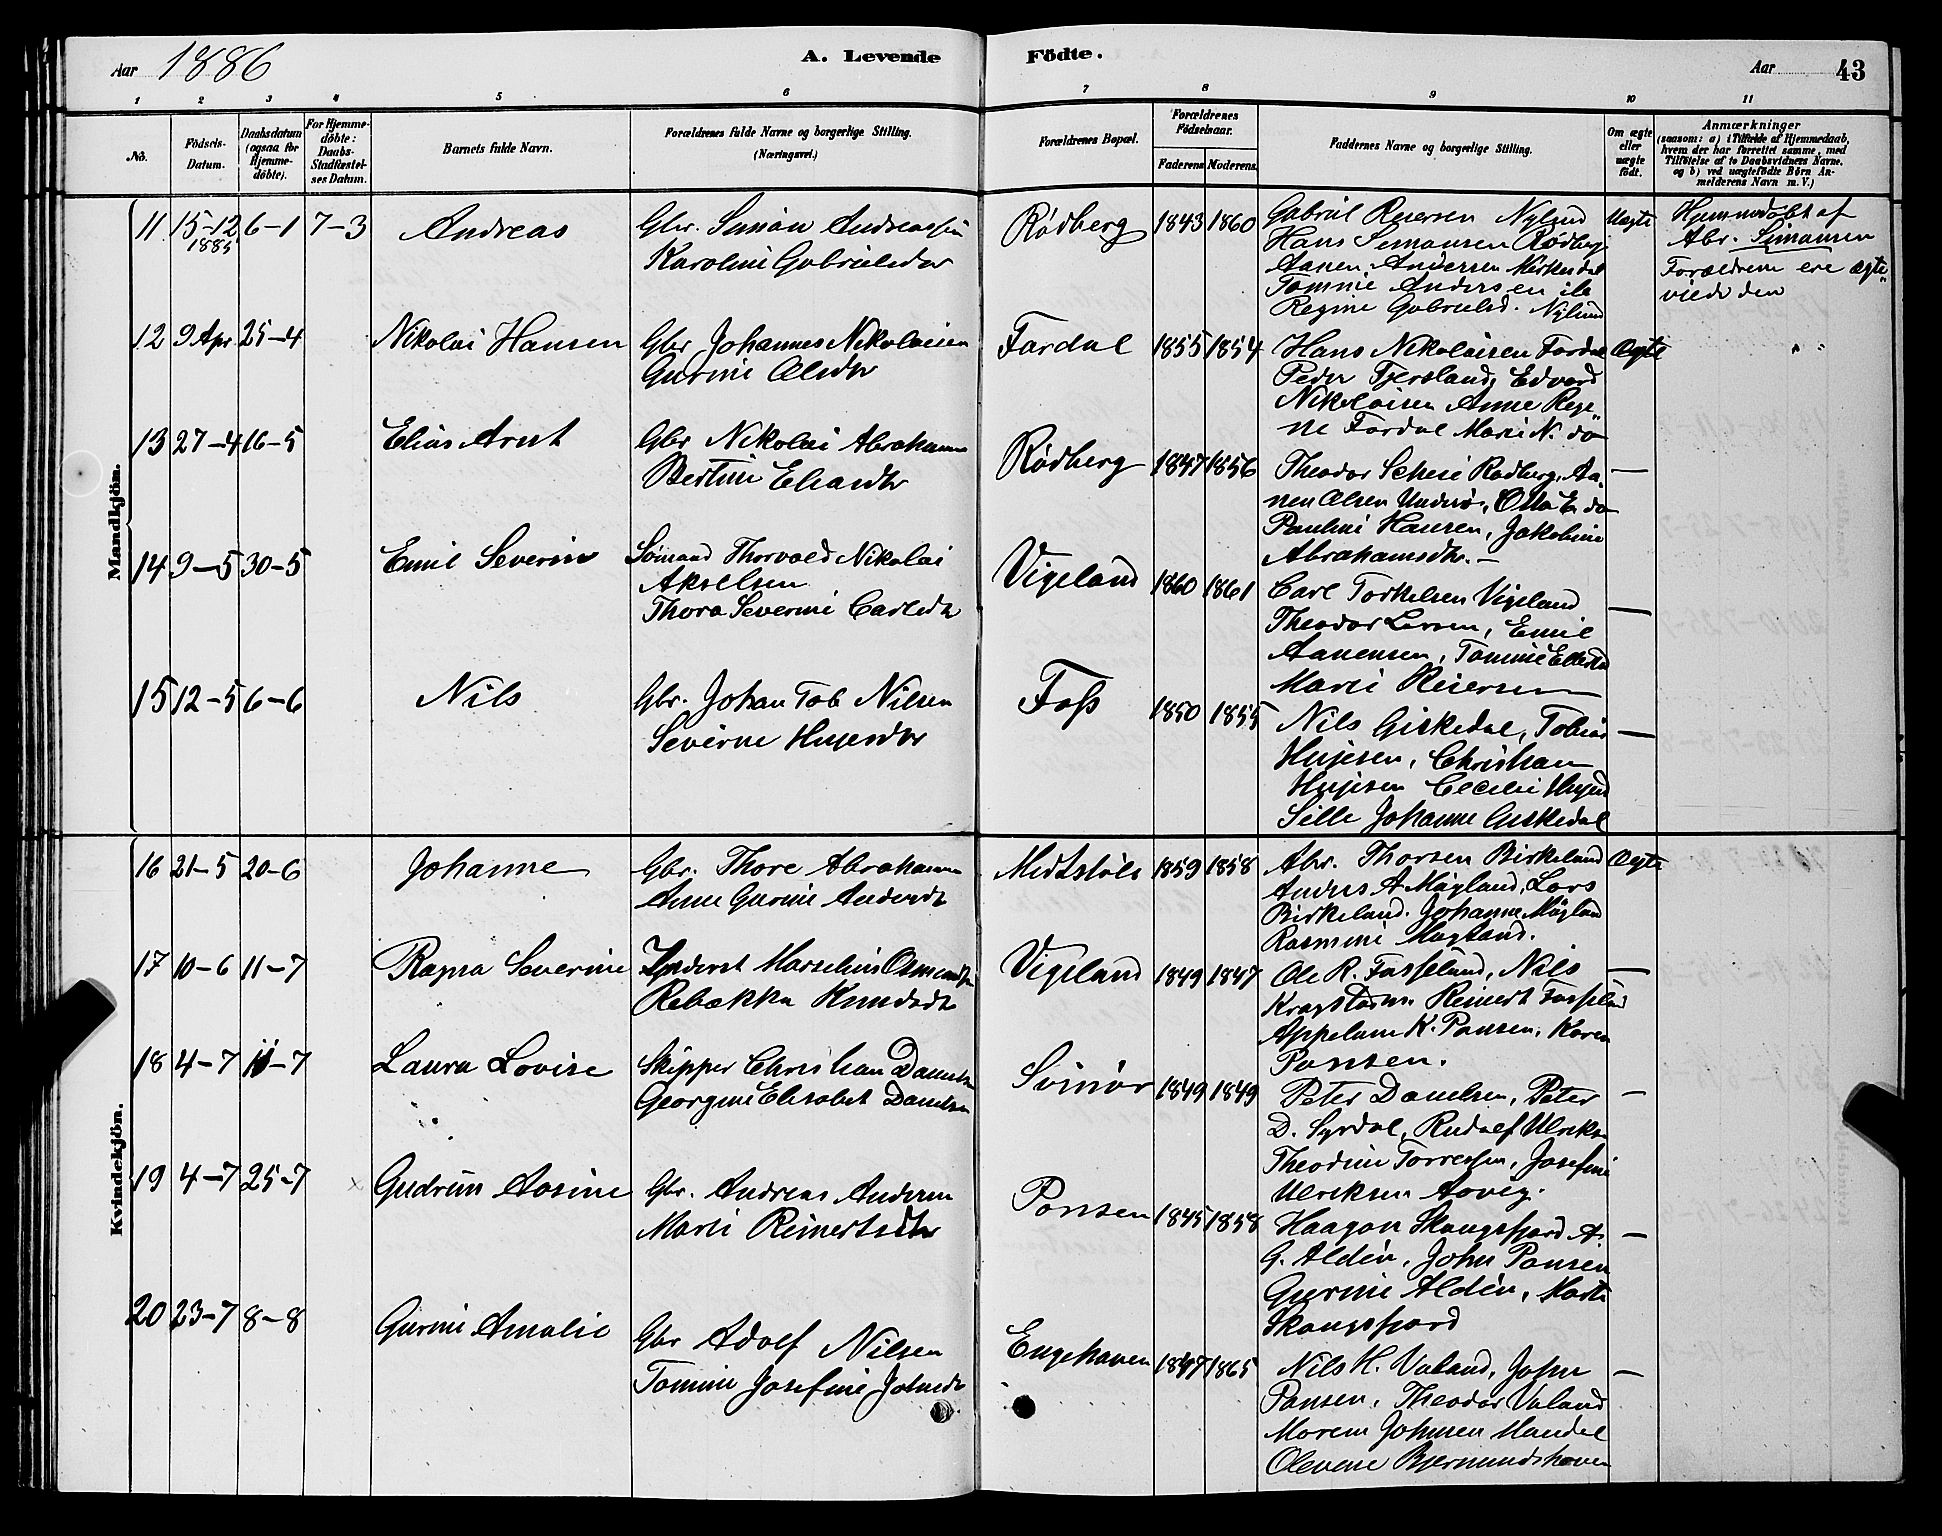 Aar 1886
A. Levende Födte.
Aar 43
1 2 3 4 5 6 7 8 9 10 11
No.
Födsels-Datum.
Daabsdatum (ogsaa for Hjemme-döbte).
For Hjemme-döbte: Daabs-Stadfæstel-ses Datum.
Barnets fulde Navn.
Forældrenes fulde Navne og borgerlige Stilling. (Næringsvei.)
Forældrenes Bopæl.
Forældrenes Födselsaar.
Faderens Moderens
Faddernes Navne og borgerlige Stilling.
Om ægte eller uægte födt.
Anmærkninger
(saasom: a) i Tilfælde af Hjemmedaab,
hvem der har forrettet samme, med
Tilföielse af to Daabsvidners Navne,
og b) ved uægtefödte Börn An-
melderens Navn m. V.)
Mandkjön.
11 15-12 1885 6-1 7-3 Andreas
Gbr. Simon Andreassen
Karolini Gabrielsdtr
Rødberg 1843 1860
Gabriel Reiersen Nylund
Hans Simonsen Rødberg
Aanen Andersen Kirkedal
Tomine Andersen ib
Regine Gabrielsd. Nylund
Uægte
Hjemmedøbt af
Abr. Simonsen
Forældrene ere ægte
viede den
12 9 Apr 25-4 Nikolai Hansen
Gbr Johannes Nikolaisen
Gurine Olsdtr
Fardal 1855 1854
Hans Nikolaisen Fardal
Peder Tjersland, Edvard
Nikolaisen Anne Rege„
ne Fardal Marie N. do
Ægte
13 27-4 16-5 Elias Arnt
Gbr Nikolai Abrahams
Bertine Eliasdtr
Rødberg 1847 1856
Theodor Rødberg, Aa„
nen Olsen Underø, Otto E do
Pauline Hansen, Jakobine
Abrahamsdtr. -
—
14 9-5 30-5 Emil Severin
Sømand Thorvald Nikolai
Akselsen
Thora Severine Carlsdtr
Vigeland 1860 1861
Carl Torkelsen Vigeland
Theodor Larsen, Emil
Aanensen, Tomine Ellefsdtr
Marie Reiersen
—
15 12-5 6-6 Nils
Gbr. Johan Tob Nilsen
Severine Huyesdtr
Foss 1850 1855
Nils Giskedal, Tobias
Huyesen, Christian
Huyesen Cecilie Huyesd
Sille Johanne Giskedal
—
Kvindekjön.
16 21-5 20-6 Johanne
Gbr. Thore Abrahams
Anne Gurine Andersdtr
Midtstøls 1859 1858
Abr. Thorsen Birkeland
Anders A Møgland, Lars
Birkeland. Johanne Møgland
Rasmine Møgland.
Ægte
17 10-6 11-7 Ragna Severine
Marselius Osmundsen
Rebækka Knudsdtr
Vigeland 1849 1847
Ole R. Fasseland, Nils
Reinert Fasseland
K. Ponsen, Karen
Ponsen.
—
18 4-7 11-7 Laura Lovise
Skipper Christian Danielsen
Georgine Elisabet Danielsen
Svinør 1849 1849
Peter Danielsen, Peter
D. Syrdal, Rudolf Ulriksen
Theodine Torressen, Josefine
Ulriksen Aavig.
—
19 4-7 25-7 Gudrun Aasine
Gbr. Andreas Andersen
Marie Reinertsdtr
Ponsen 1845 1858
Haagon Skougsfjord A.
G. Aldén, John Ponsen
Gurine Aldén, Marte
Skougsfjord
—
20 23-7 8-8 Gurine Amalie
Gbr Adolf Nilsen
Tomine Josefine Johnsdtr
Engehaven 1847 1865
Nils H. Valand, John
Ponsen, Theodor Valand
Maren Johnsen Mandal
Olevene Bjermundshaven
—